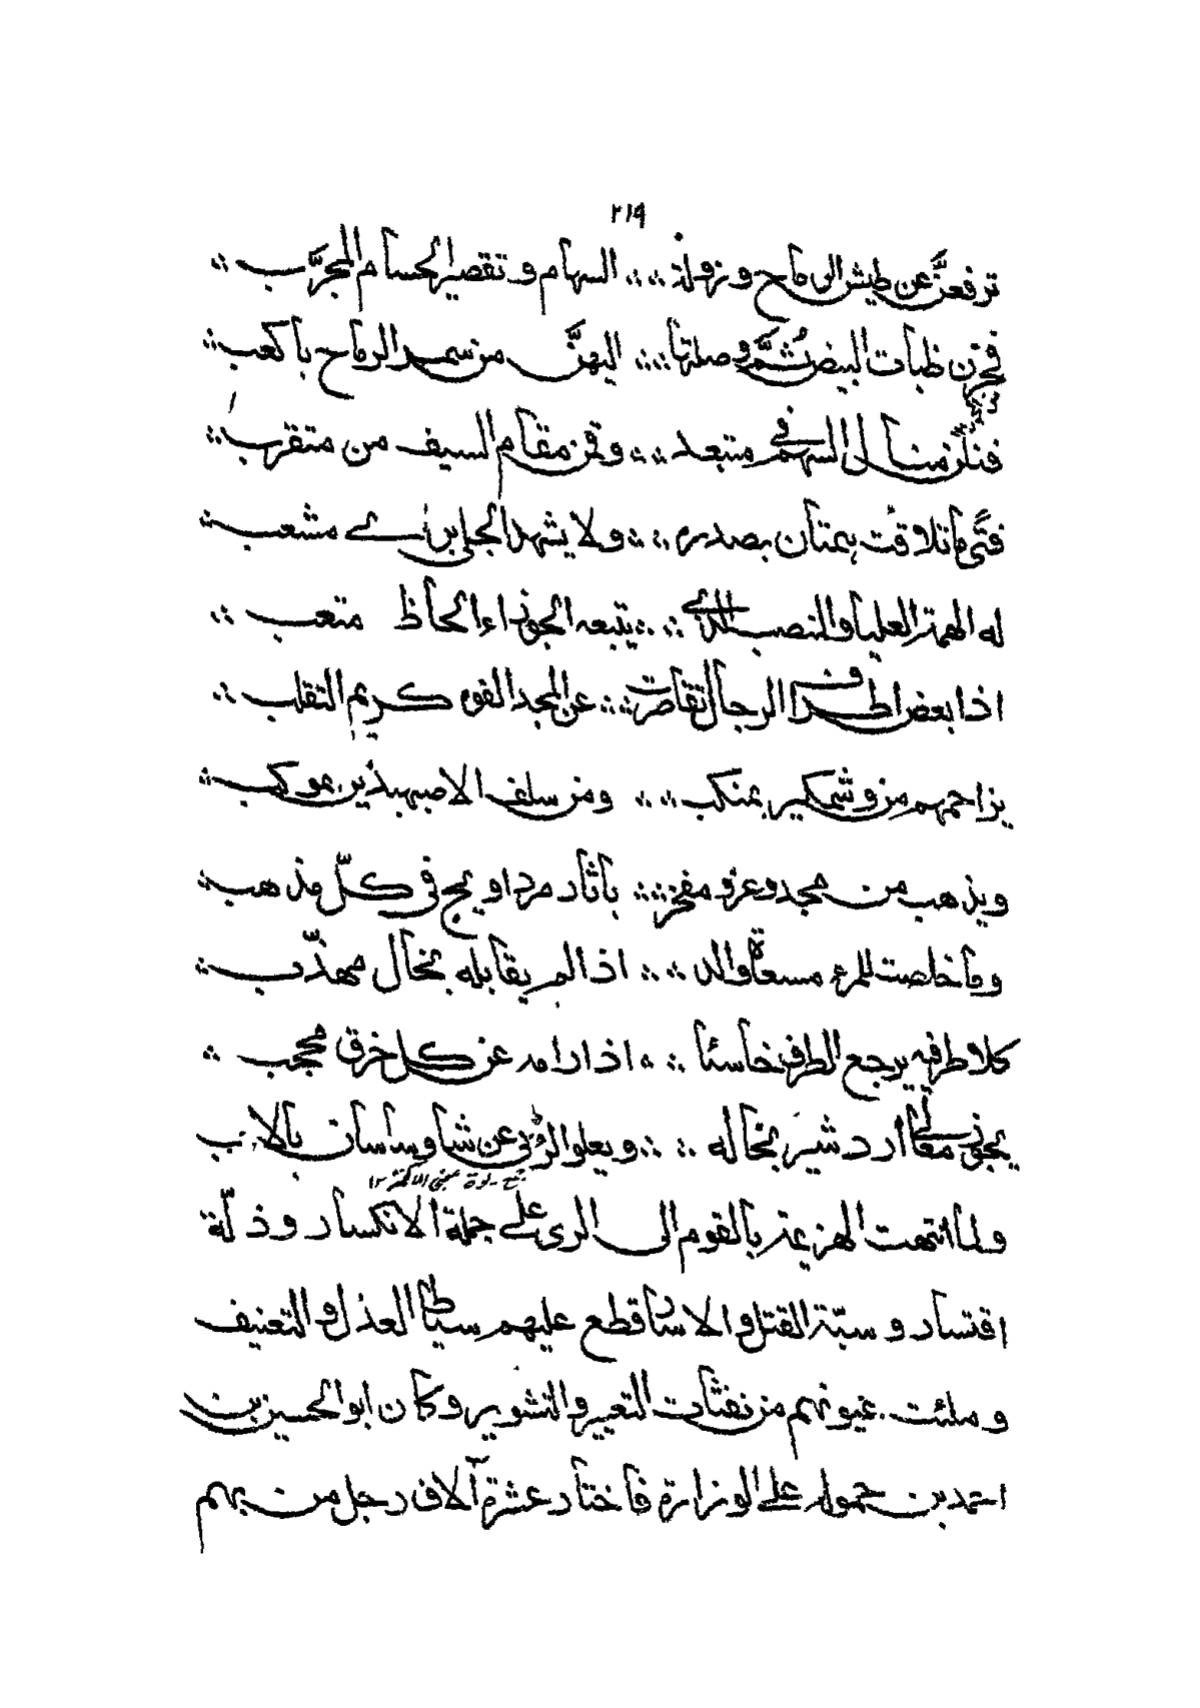 ٢١٩
ترفعنّ عن طيش الرماح ونزولة ∴ السهام وتقصير الحسام المجرّب ∴
فجزن ظبات البيض ثُمَّ وصلتها ∴ اليهنّ من سمر الرماح باكعب ∴
فنلن منال السهم في متبعد ∴ وقمن مقام السيف من متقرب ∴
فتًى ما تلاقت بهمتان بصدره ∴ ولا يشهد الجلى براى مشعب ∴
له الهمة العليا والنصب الذى ∴ يتبعه الجوزاء الحاظ متعب ∴
اذا بعض اطراف الرجال تقاصرت ∴ عن المجد الفوه كريم التقلب ∴
يزاحمهم من وشمكير بمنكب ∴ ومن سلف الاصبهبذين بموكب ∴
ويذهب من مجد وعز ومفخر ∴ باثار مرداويج فى كلّ مذهب ∴
وما خلصت للمرء مسعاة والد ∴ اذا لم يقابله بخال مهذّب ∴
كلا طرفيه يرجع الطرف خاسئا ∴ اذا رامه عن كل خرق محجب ∴
يجوز معالى أردشير بخاله ∴ ويعلو الربى عن شاو ساسان بالاب
ولما انتهت الهزيمة بالقوم الى الرى على جملة الانكسار وذلّة
اقتسار وسبّة القتل والاسار قطع عليهم سياط العذل والتعنيف
وملئت عيونهم من نفثات التعيير والتشوير وكان ابو الحسين بن
احمد بن حمولة على الوزارة فاختار عشرة آلاف رجل من بهم